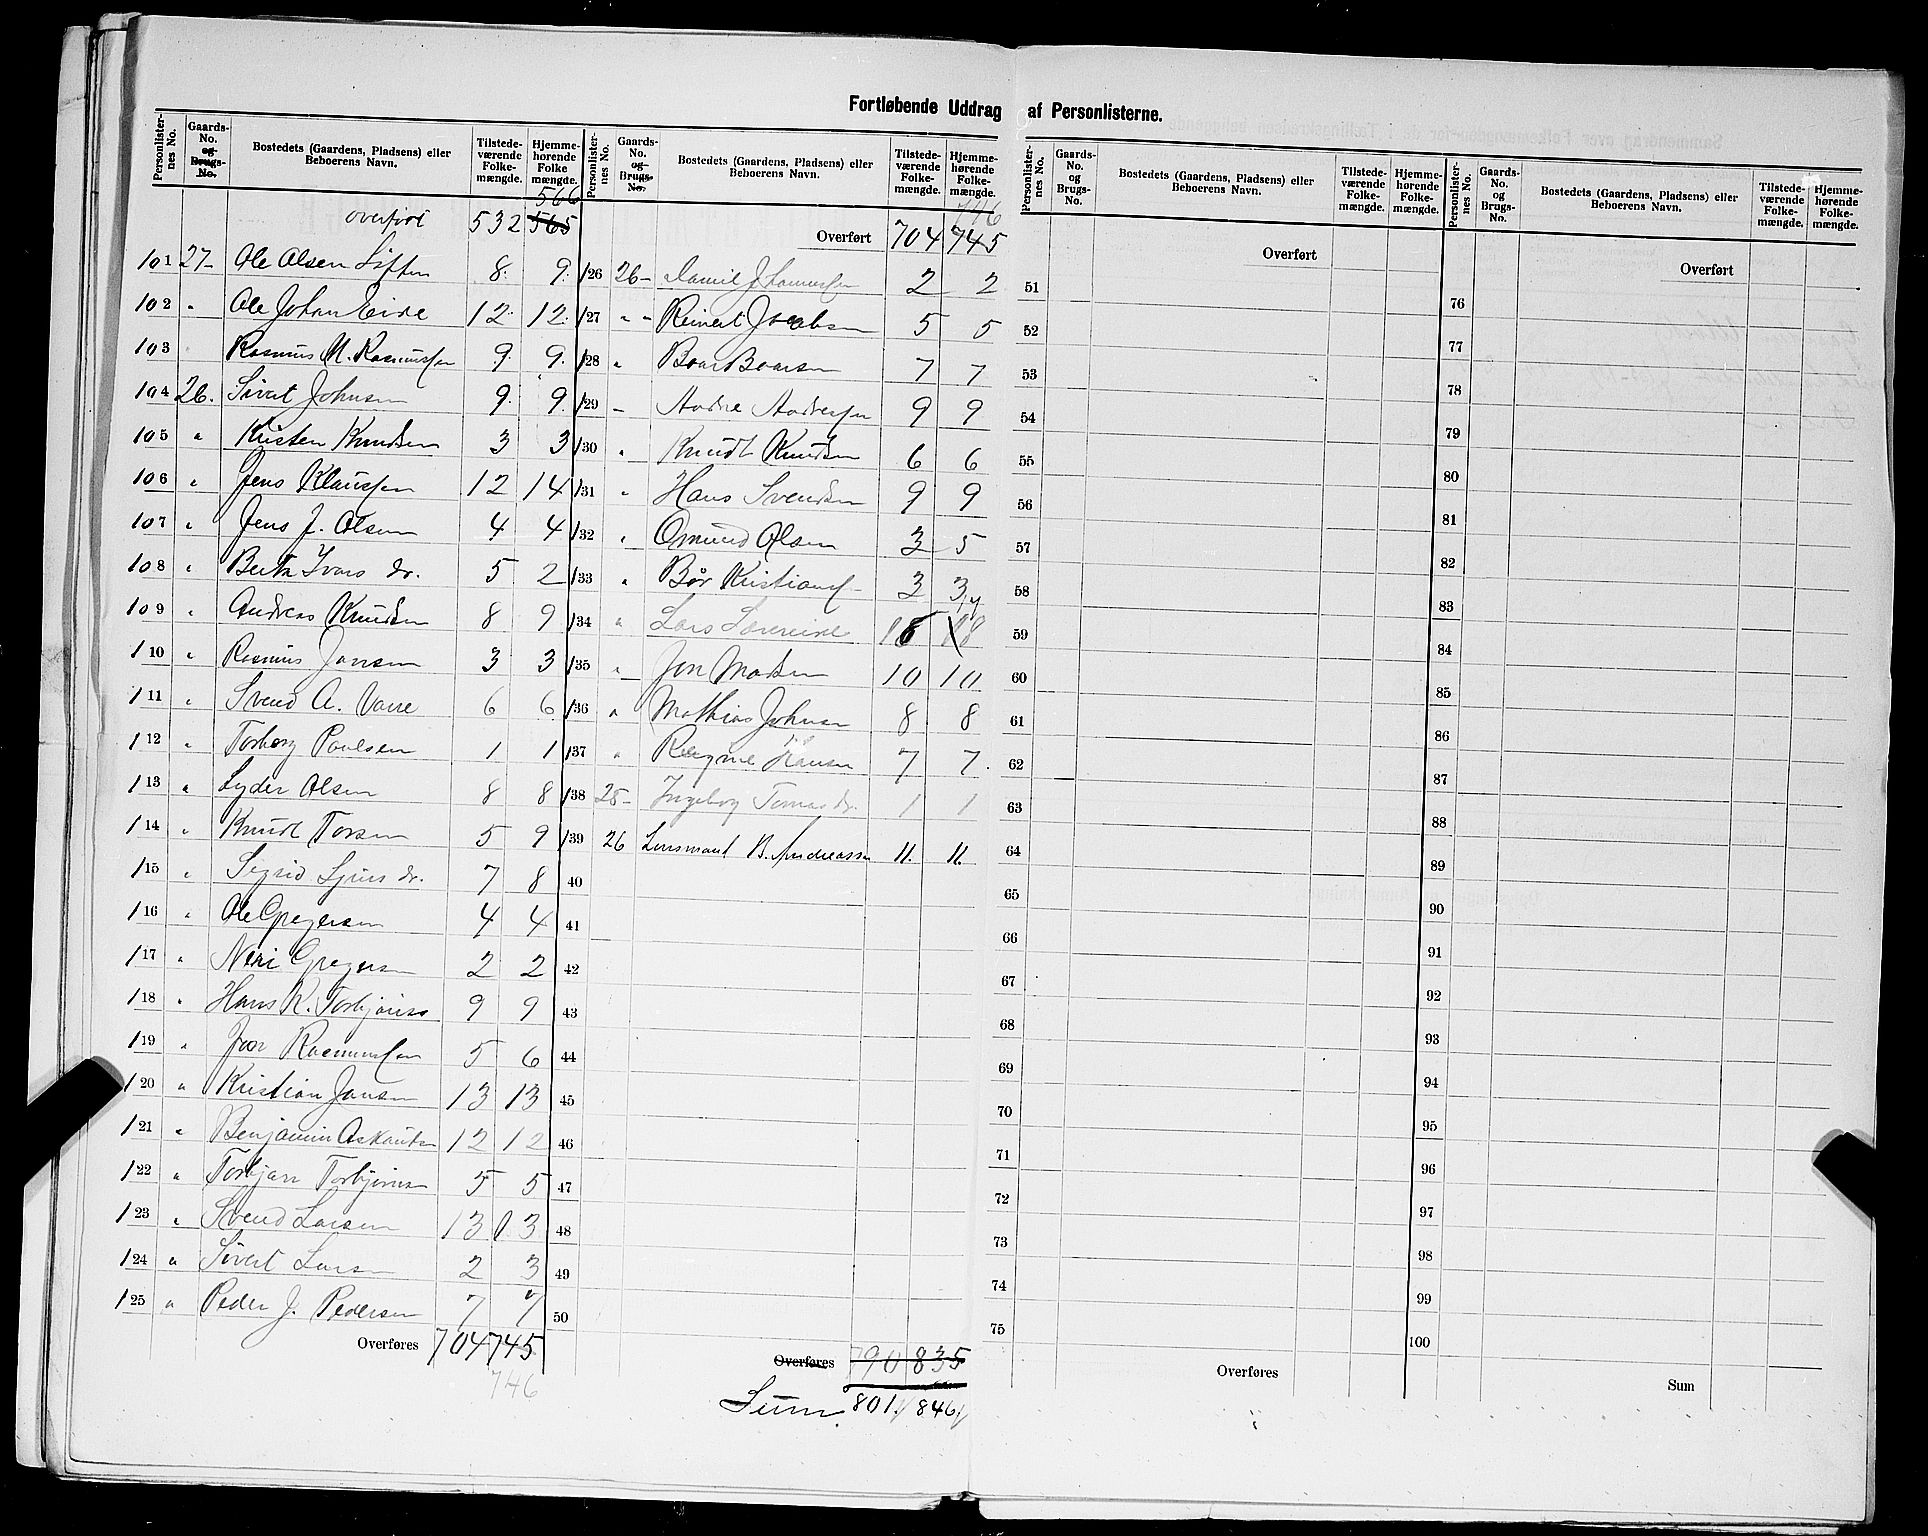 Fortløbende Uddrag af Personlisternes.
Personlister-nes No. Gaards-No. og Brugs-No. Bostedets (Gaardens, Pladsens) eller Beboerens Navn. Tilstede-værende Folke-mængde. Hjemme-hørende Folke mængde.
overført 532 565 566
101 27- Ole Olsen 8. 9.
102 " Ole Johan Eide 12. 12.
103 Rasmus M. Rasmussen 9. 9.
104 26. Sivert Johnsen 9. 9.
105 " Kristen Knudsen 3 3
106 " Jens Klaussen 12 14
107 " Jens J. Olsen 4 4
108 " Berta Ivars dr. 5 2
109 " Andreas Knudsen 8 9
110 " Rasmus Jansen 3 3
111 " Svend A. 6 6
112 " Torborg Paulsen 1 1
113 " Lyder Olsen 8 8
114 " Knudt Torsen 5 9
115 " Sigrid dr. 7 8
116 " Ole Gregersen 4 4
117 " Neri Gregersen 2 2
118 " Hans K. Torbjørns 9 9
119 " Rasmussen 5 6
120 " Kristian Jansen 13 13
121 " Benjamin 12 12
122 " Torbjørn Torbjørnsen 5 5
123 " Svend Larsen 13 13
124 " Sivert Larsen 2 3
125 " Peder J. Pedersen 7 7
Overføres 704 745
746
Personlister-nes No. Gaards-No. og Brugs-No. Bostedets (Gaardens, Pladsens) eller Beboerens Navn. Tilstede-værende Folke-mængde. Hjemme-hørende Folke-mængde.
746
Overført 704 745
126 26- Daniel Johannessen 2 2
127 " " Reinert Jacobsen 5 5
128 " Boar Boarsen 7 7
129 " Andre Andresen 9 9
130 " Knudt Knudsen 6 6
131 " Hans Svendsen 9 9
132 " Omund Olsen 3 5
133 " Bår 3 3
134 " Lars
135 " Jon Madsen 10 10
136 " Mathias Johnsen 8 8
137 " Hansen 7 7.
138 28- Ingeborg Tomas dr. 1 1
139 26 Lensmand B. Andreassen 11. 11.
40
41
42
43
44
45
46
47
48
49
50
Overføres 790 835
Sum. 801. 846.
Personlister-nes No. Gaards-No. og Brugs-No. Bostedets (Gaardens, Pladsens) eller Beboerens Navn. Tilstede-værende Folke-mængde. Hjemme-hørende Folke-mængde.
Overført
51
52
53
54
55
56
57
58
59
60
61
62
63
64
65
66
67
68
69
70
71
72
73
74
75
Overføres
Personlister-nes No. Gaards-No. og Brugs-No. Bostedets (Gaardens, Pladsens) eller Beboerens Navn. Tilstede-værende Folke-mængde. Hjemme-hørende Folke-mængde.
Overført
76
77
78
79
80
81
82
83
84
85
86
87
88
89
90
91
92
93
94
95
96
97
98
99
100
Sum